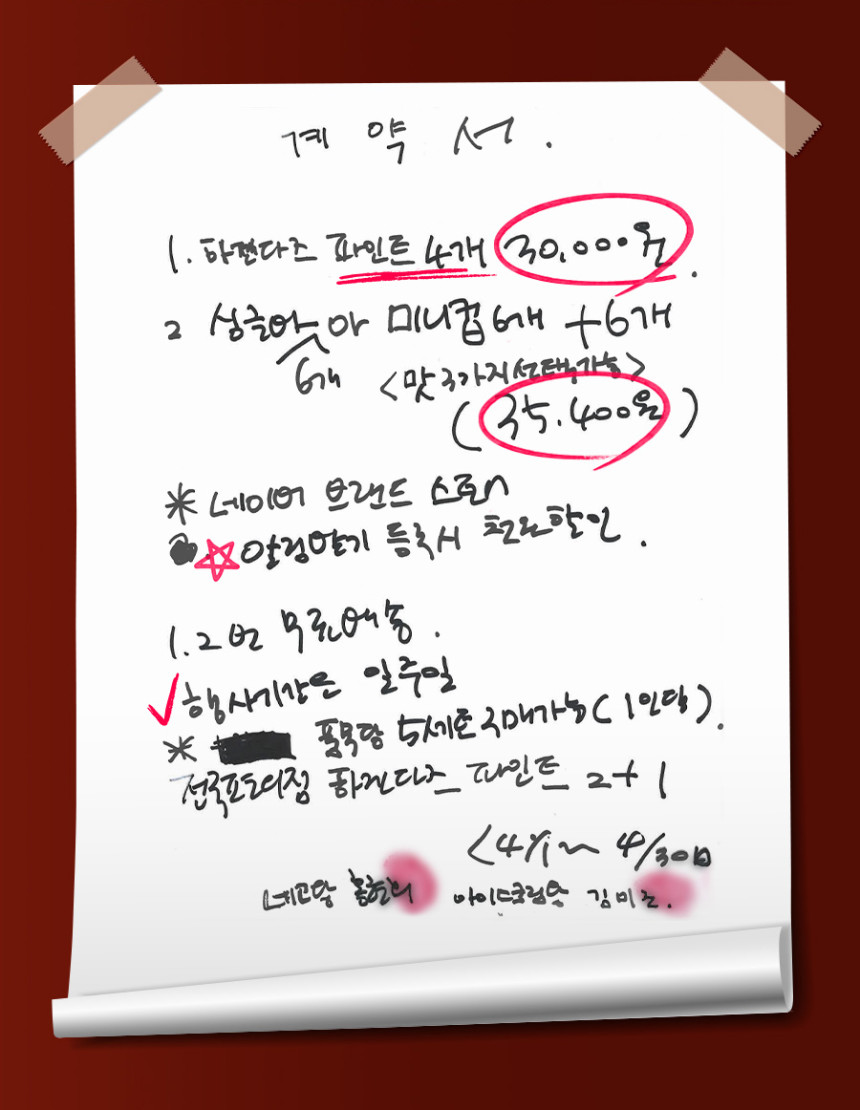 계 약 서 .
1. 하겐다즈 파인트 4개 30,000원 .
2 싱글바 미니컵 6개 +6개
6개 <맛 3가지 선택가능>
( 35.400원 )
* 네이버 브랜드 스토어
☆ 알림받기 등록시 할인 .
1. 2번 무료배송 .
✓ 행사기간은 일주일
* 품목당 5세트 구매가능 ( 1인당 ) .
전국 편의점 하겐다즈 파인트 2+1
<4/1~ 4/30일
네고왕 홍현희 김미조.